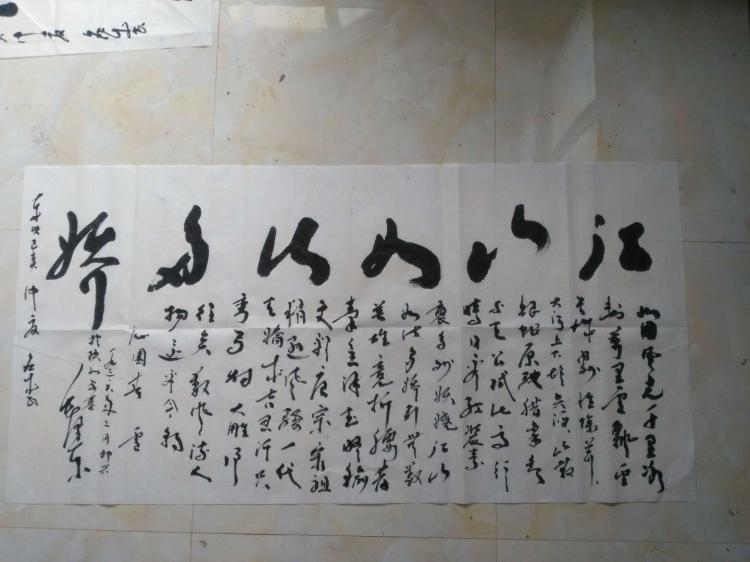 江山如此多娇
北国风光千里冰
封万里雪飘望
长城内外惟余莽莽
大河上下顿失滔滔山舞
银蛇原驰腊象欲
与天公试比高须
晴日看红装素
裹分外妖娆江山
如此多娇引无数
英雄竞折腰惜
秦皇汉武略输
文彩唐宗宋祖
稍逊风骚一代
天骄成吉思汗只
识弯弓射大雕俱
往矣数风流人
物还看今朝
沁园春 雪
一九三六年二月
毛泽东
己亥 仲夏